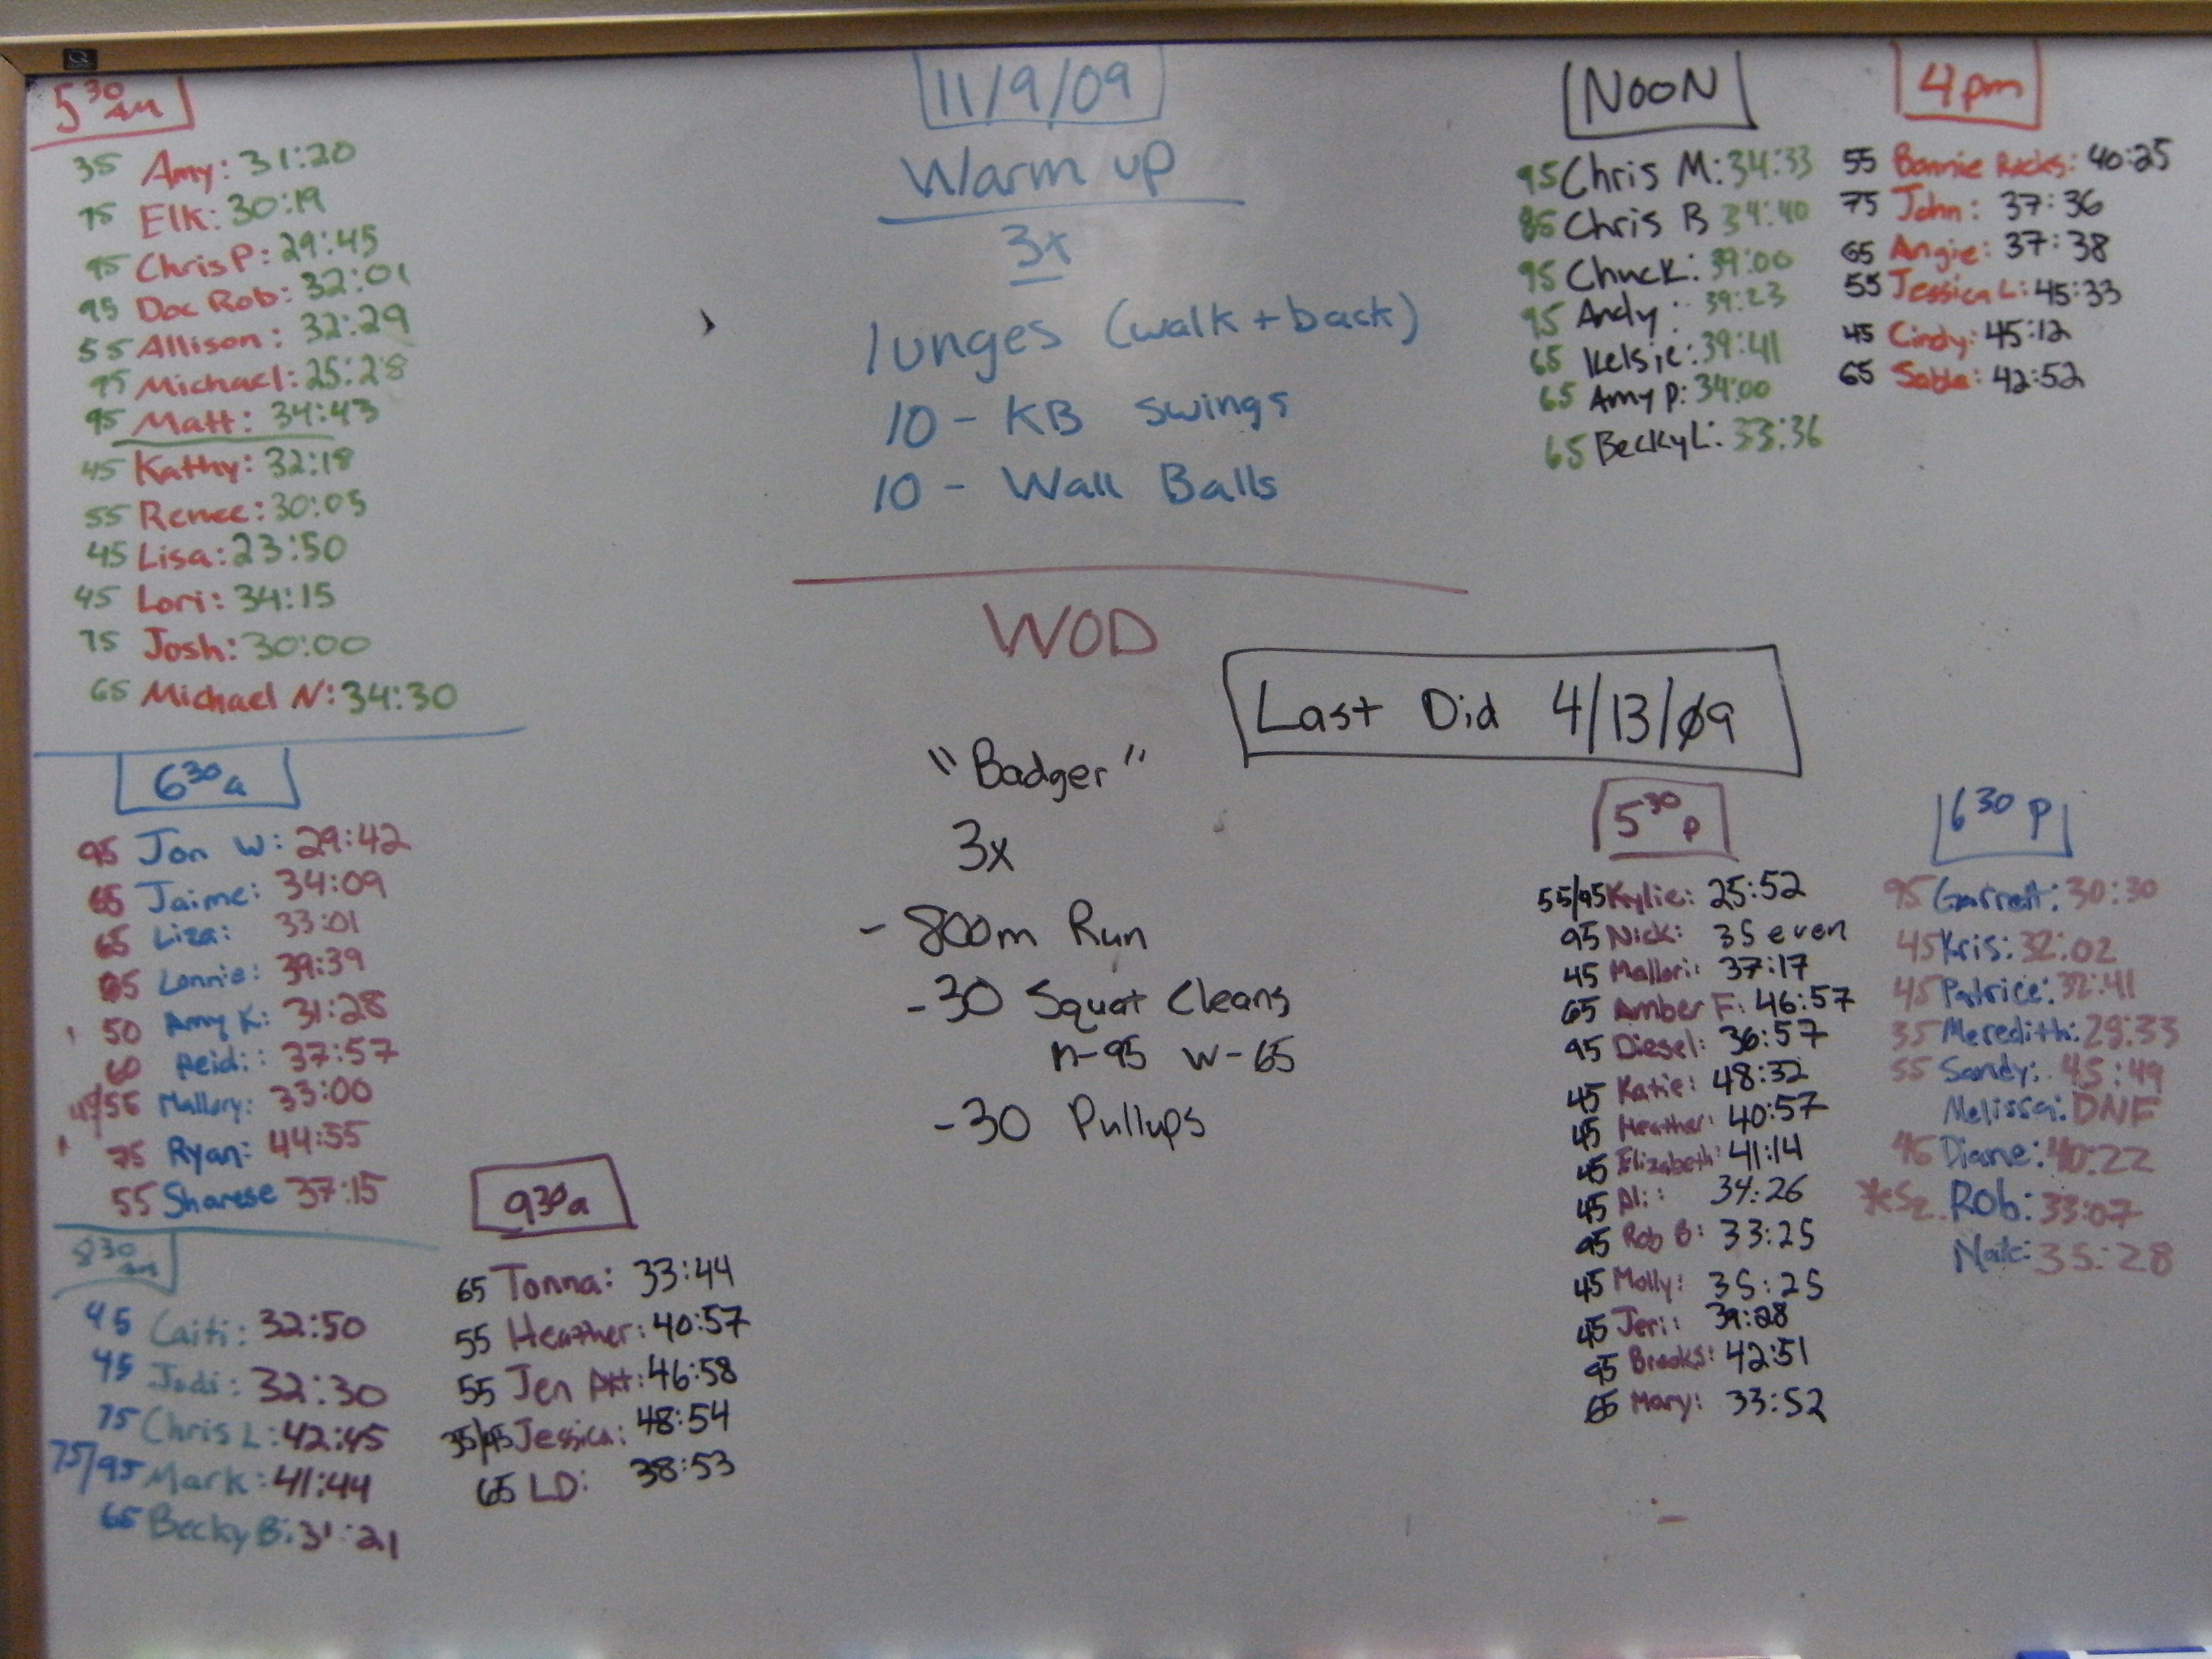 5 30 am
35 Amy: 31:20
75 Elk: 30:19
95 Chris P: 29:45
95 Doc Rob: 32:01
55 Allison: 32:29
95 Michael: 25:28
95 Matt: 34:43
45 Kathy: 32:18
55 Renee: 30:05
45 Lisa: 23:50
45 Lori: 34:15
75 Josh: 30:00
65 Michael N: 34:30
6 30 a
95 Jon W: 29:42
65 Jaime: 34:09
65 Liza: 33:01
Lonnie: 39:39
50 Amy K: 31:28
60 Reid: 37:57
45/55 Mallory: 33:00
75 Ryan: 44:55
55 Sharese 37:15
8 30 am
45 Caiti: 32:50
45 Jodi: 32:30
75 Chris L: 42:45
75/95 Mark: 41:44
65 Becky B: 31:21
9 30 a
65 Tonna: 33:44
55 Heather: 40:57
55 Jen 46:58
35/45 Jessica: 48:54
65 LD: 38:53
11/9/09
Warm up
3x
lunges (walk + back)
10 - KB swings
10 - Wall Balls
WOD
Last Did 4/13/09
"Badger"
3x
- 800m Run
- 30 Squat Cleans
m-95 w-65
- 30 Pullups
NOON
95 Chris M: 34:33
Chris B 34:40
95 Chuck: 39:00
95 Andy: 39:23
65 Kelsie: 39:41
65 Amy P: 34:00
65 Becky L: 33:36
4 pm
55 Bonnie Rocks: 40:25
75 John: 37:36
65 Angie: 37:38
55 Jessica L: 45:33
45 Cindy: 45:12
65 42:52
5 30 p
55/95 Kylie: 25:52
95 Nick: 35 even
45 Mallori: 37:17
65 Amber F: 46:57
95 Diesel: 36:57
45 Katie: 48:32
45 Heather: 40:57
45 Elizabeth: 41:14
45 Ali: 34:26
95 Rob B: 33:25
45 Molly: 35:25
45 Jeri: 39:28
95 Brooks: 42:51
65 Mary: 33:52
6 30 p
95 Garrett: 30:30
45 Kris: 32:02
45 Patrice: 32:41
35 Meredith: 29:33
55 Sandy: 45:49
Melissa: DNF
45 Diane: 40:22
Rob: 33:07
Nate: 35:28